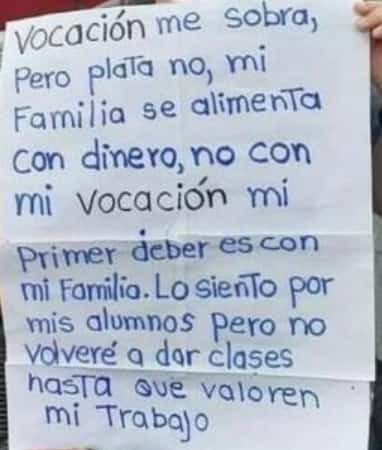 VOCACIÓN me sobra,
Pero plata no, mi
Familia se alimenta
con dinero, no con
mi VOCACIÓN mi
Primer deber es con
mi Familia. Lo siento por
mis alumnos Pero no
volveré a dar clases
hasta que valoren
mi Trabajo